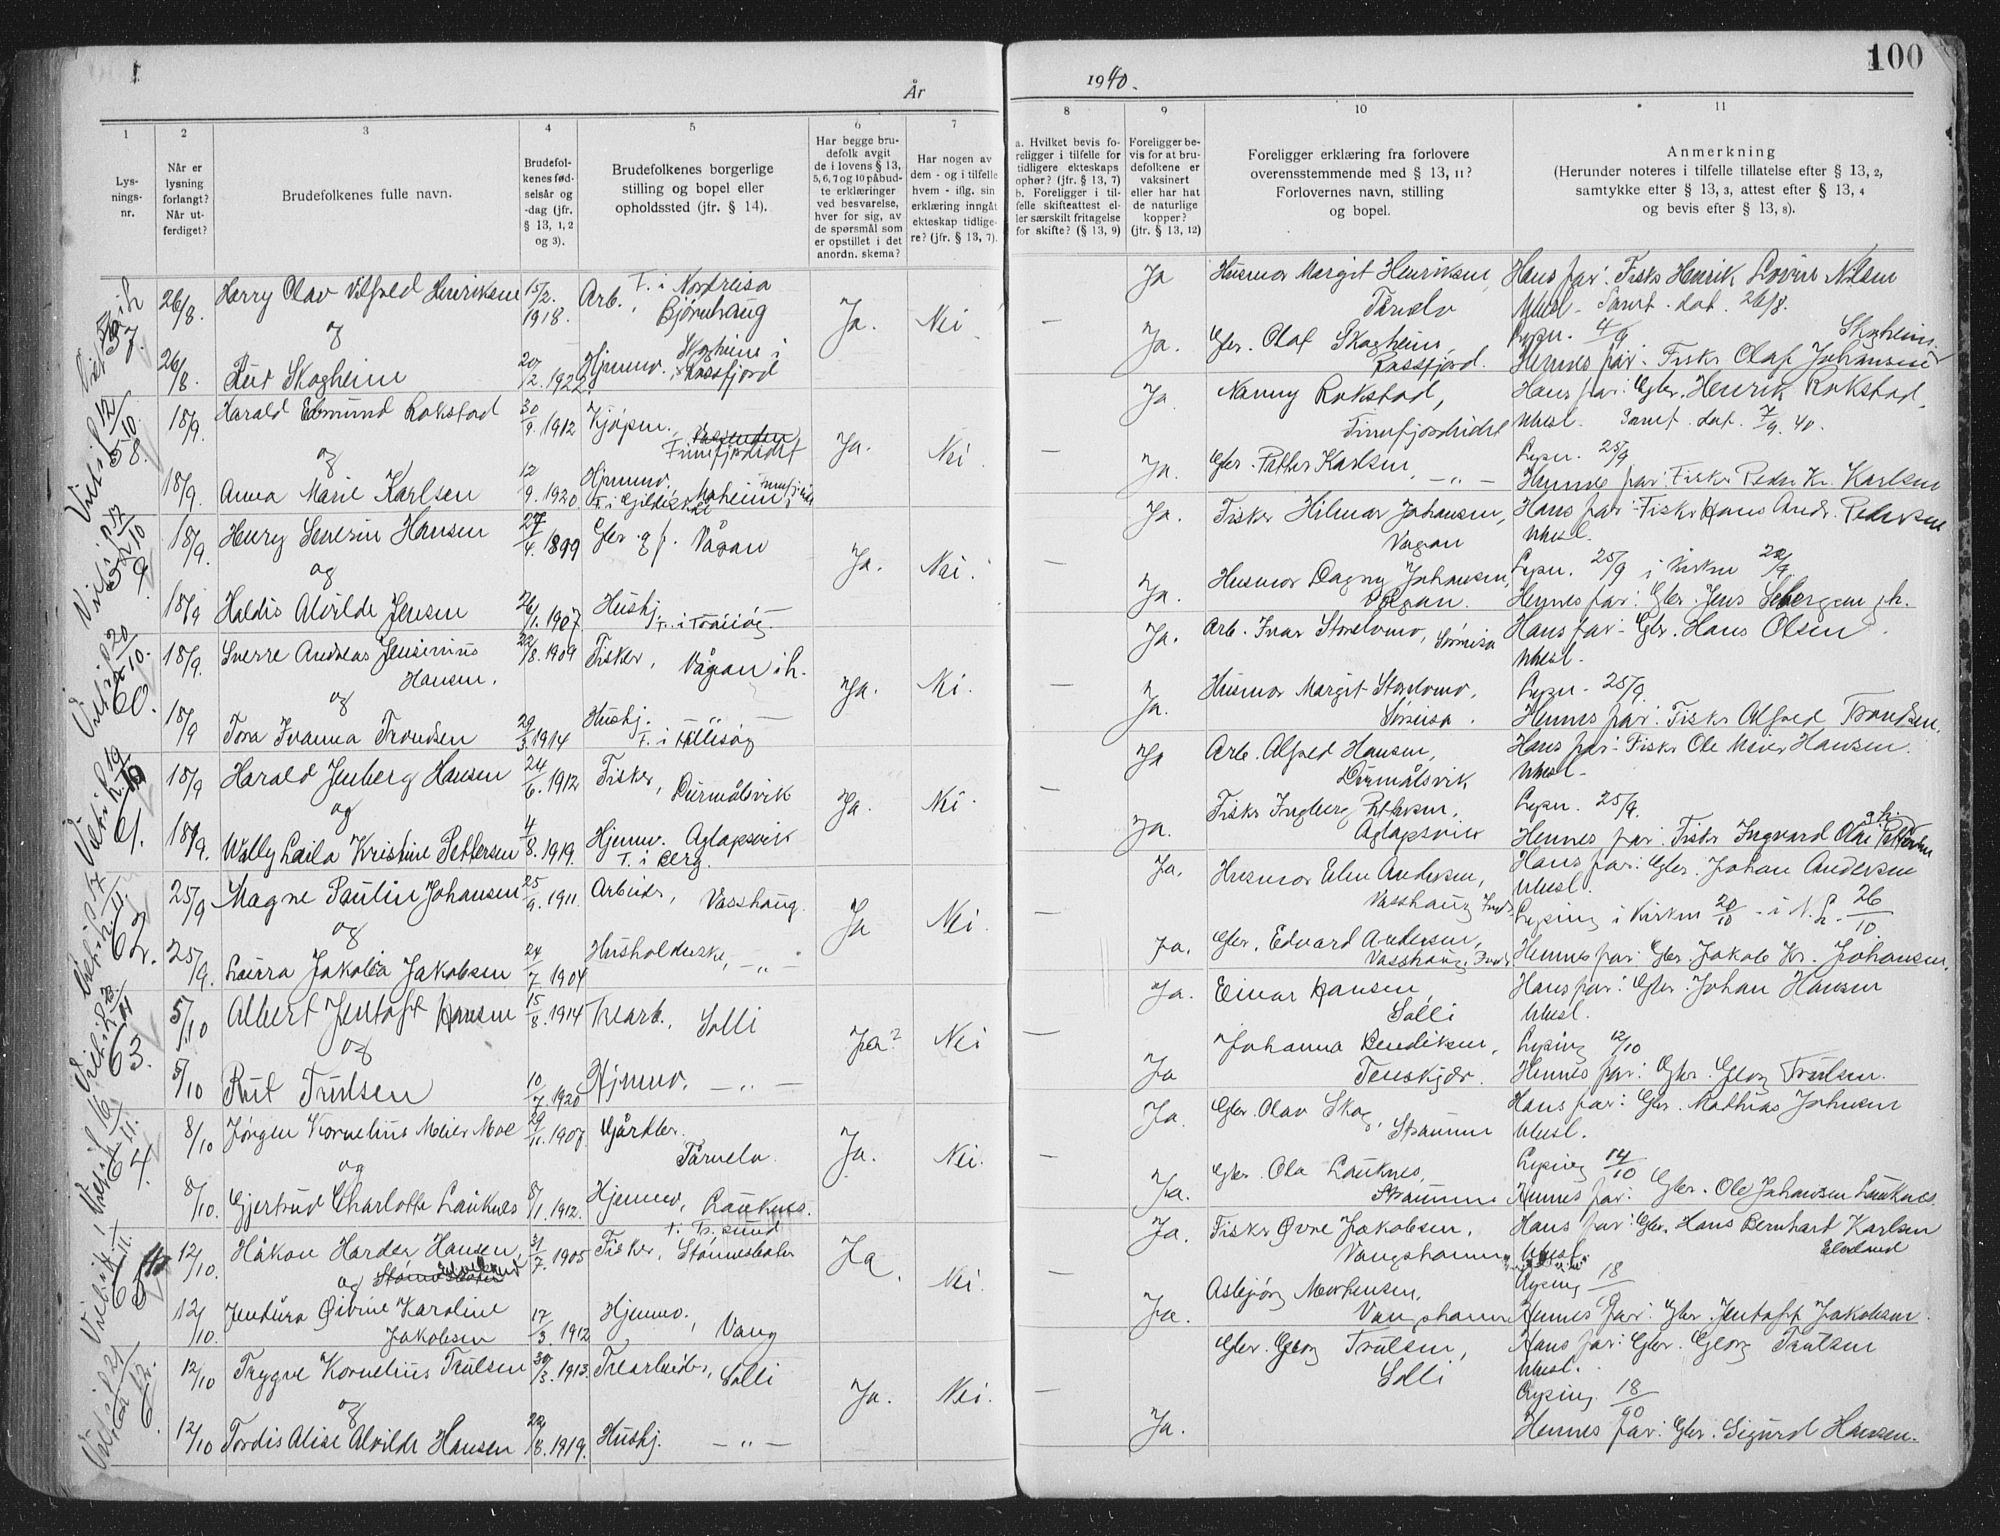 100
År
1940.
1
2
3
4
5
6
7
8
9
10
11
Lys-
nings-
nr.
Når er
lysning
forlangt?
Når ut-
ferdiget?
Brudefolkenes fulle navn.
Brudefol-
kenes fød-
selsår og
-dag (jfr.
§ 13, 1, 2
og 3).
Brudefolkenes borgerlige
stilling og bopel eller
opholdssted (jfr. § 14).
Har begge bru-
defolk avgit
de i lovens § 13,
5, 6, 7 og 10 påbud-
te erklæringer
ved besvarelse,
hver for sig, av
de spørsmål som
er opstillet i det
anordn. skema?
Har nogen av
dem - og i tilfelle
hvem - iflg. sin
erklæring inngåt
ekteskap tidlige-
re? (jfr. § 13, 7).
a. Hvilket bevis fo-
religger i tilfelle for
tidligere ekteskaps
ophør? (jfr. § 13, 7)
b. Foreligger i til-
felle skifteattest el-
ler særskilt fritagelse
for skifte? (§ 13, 9)
Foreligger be-
vis for at bru-
defolkene er
vaksinert
eller har hat
de naturlige
kopper?
(jfr. § 13, 12)
Foreligger erklæring fra forlovere
overensstemmende med § 13, 11?
Forlovernes navn, stilling
og bopel.
Anmerkning
(Herunder noteres i tilfelle tillatelse efter § 13, 2,
samtykke efter § 13, 3, attest efter § 13, 4
og bevis efter § 13, 8).
57.
26/8. Harry Olav Vilfred Henriksen 15/2. 1918. Arb., F. i Nordreisa
Bjørnhaug Ja. Nei — Ja Husmor Margit Henriksen,
Tårnelv Hans far: Fisker Henrik Lovin Nilsen
og
Uhesl. Samt. dat. 26/8.
Lysn. 4/9
26/8. Rut Skogheim 20/12. 1922. Hjemmev. Skogheim i
Rossfjord Ja. Gbr. Olaf Skogheim,
Rossfjord. Hennes far: Fisker Olaf Johansen
Skogheim.
58.
18/9. Harald Edmund Rokstad 30/9. 1912 Kjøpm.,
Finnfjordeidet Ja. Nei. — Ja Nanny Rokstad,
Finnfjordeidet Hans far: Gbr. Henrik Rokstad,
og
Uhesl. Samt. dat. 7/9. 40.
Lysn. 25/9
18/9. Anna Marie Karlsen 12/9. 1920 Hjemmev.
F. i Gildeskål, Moheim, Ja. Gbr. Petter Karlsen, — „ — Hennes far: Fisker Peder Kr. Karlsen
59.
18/9. Henry Severin Hansen 27/4. 1899 Gbr. og f. Vågan Ja. Nei. — Ja. Fisker Hilmar Johansen,
Vågan Hans far: Fisker Hans Andr. Pedersen
og
Uhesl.
Lysn. 25/9 i Kirken 22/9.
18/9 Haldis Alvilde Jensen 26/1. 1907. Hushj.
F. i Tranøy. Ja. Husmor Dagny Johansen,
Vågan. Hennes far: Gbr. Jens
60.
18/9. Sverre Andreas Jensinius
Hansen. 22/8. 1909 Fisker, Vågan i h. Ja. Nei. — Ja. Arb. Ivar Storelvmo, Sørreisa Hans far: Gbr. Hans Olsen
og
Uhesl.
Lysn. 25/9
18/9 Tora Ivanna Trondsen 29/3. 1914 Hushj. —
F. i Hillesøy Ja. Husmor Margit Storelvmo,
Sørreisa. Hennes far: Fisker Alfred Trondsen.
61.
18/9 Harald Jenberg Hansen 24/6. 1912 Fisker,
Durmålsvik Ja. Nei. — Ja Arb. Alfred Hansen,
Durmålsvik Hans far: Fisker Ole Meier Hansen.
og
Uhesl.
Lysn. 25/9.
18/9. Wally Laila Kristine Pettersen 4/8. 1919. Hjemmev. Aglapsvik
F. i Berg. Ja. Fisker Ingberg Pettersen,
Aglapsvik Hennes far: Fisker Ingvard Olai Pettersen
62.
25/9 Magne Paulin Johansen 25/9. 1911. Arbeider, Vasshaug. Ja Nei. — Ja. Husmor Elen Andersen,
Vasshaug Hans far: Gbr. Johan Andersen
og
Uhesl.
Lysing i Kirken 20/10 - i N. L. 26/10.
25/9. Laura Jakobia Jakobsen 24/7 1904 Husholderske, — „ — Ja. Gbr. Edvard Andersen,
Vasshaug, Hennes far: Gbr. Jakob Kr. Johansen.
63.
5/10 Albert Jentoft Hansen 15/8. 1914 Trearb., Solli Ja? Nei — Ja. Einar Hansen,
Solli Hans far: Gbr. Johan Hansen
og
Uhesl.
Lysing 12/10
5/10 Rut Trulsen 10/7 1920 Hjemmev. — „ — Ja Johanna Bendiksen,
Tenskjær. Hennes far: Gbr. Georg Trulsen.
64.
8/10 Jørgen Kornelius Meier Moe 29/11. 1907. Gårdbr.
Tårnelv. Ja. Nei. — Ja. Gbr. Olav Skog,
Straumen Hans far: Gbr. Mathias Johnsen
og
Uhesl.
Lysing 14/10
8/10. Gjertrud Charlotte Lauknes 8/1. 1912. Hjemmev, Lauknes. Ja. Gbr. Ola Lauknes,
Straumen Hennes far: Gbr. Ole Johansen Lauknes.
65
12/10. Håkon Harder Hansen, 31/7. 1905 Fisker, F. Tr.sund
Ja. Nei. — Ja. Fisker Øvre Jakobsen,
Vangshamn Hans far: Gbr. Hans Bernhart Karlsen
og
Uhesl.
Lysing 18
12/10. Jentura Øivine Karoline
Jakobsen 17/3. 1912 Hjemmev, Vang Ja. Asbjørg Mortensen,
Vangshamn Hennes far: Gbr. Jentoft Jakobsen.
66.
12/10 Trygve Kornelius Trulsen 30/3. 1913. Trearbeider, Solli Ja. Nei. — Gbr. Georg Trulsen,
Solli Hans far: Gbr. Georg Trulsen
og
Uhesl.
Lysing 18
12/10 Tordis Alise Alvilde Hansen 22/8. 1919. Hushj. — „ — Ja. Hennes far: Gbr. Sigurd Hansen.